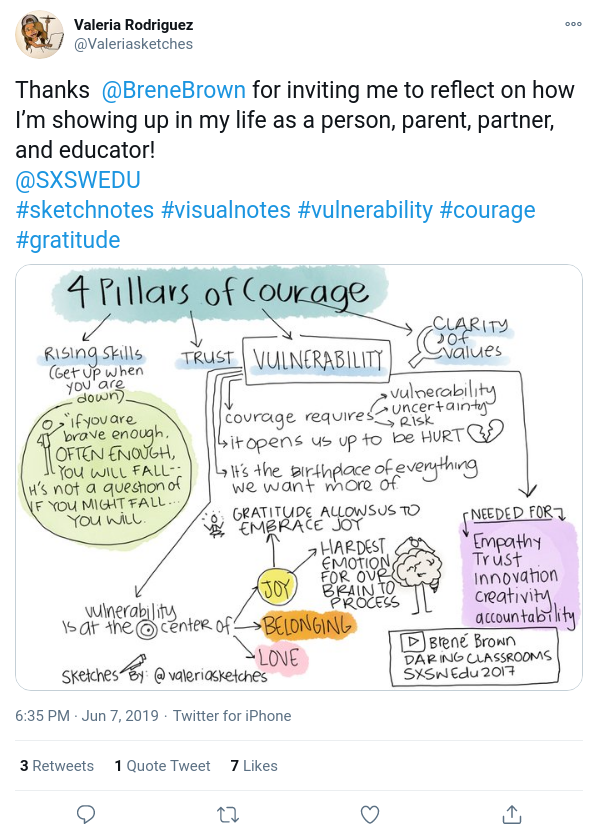 Valeria Rodriguez
@Valeriasketches
Thanks @BreneBrown for inviting me to reflect on how
I'm showing up in my life as a person, parent, partner,
and educator!
@SXSWEDU
#sketchnotes #visualnotes #vulnerability #courage
#gratitude
4 Pillars of Courage
Rising Skills
(Get up when
you are
down)
"if you are
brave enough,
OFTEN ENOUGH,
YOU WILL FALL--
It's not a question of
IF YOU MIGHT FALL...
YOU WILL.
TRUST
VULNERABILITY
CLARITY
of
values
courage requires
vulnerability
uncertainty
Risk
it opens us up to be HURT
It's the Birthplace of everything
we want more of
GRATITUDE ALLOWS US TO
EMBRACE JOY
HARDEST
EMOTION
FOR OUR
BRAIN TO
PROCESS
vulnerability
Is at the center of
JOY
BELONGING
LOVE
NEEDED FOR
Empathy
Trust
innovation
creativity
accountability
Brené Brown
DARING CLASSROOMS
SXSWEdu 2017
Sketches By: @valeriasketches
6:35 PM · Jun 7, 2019 · Twitter for iPhone
3 Retweets 1 Quote Tweet 7 Likes